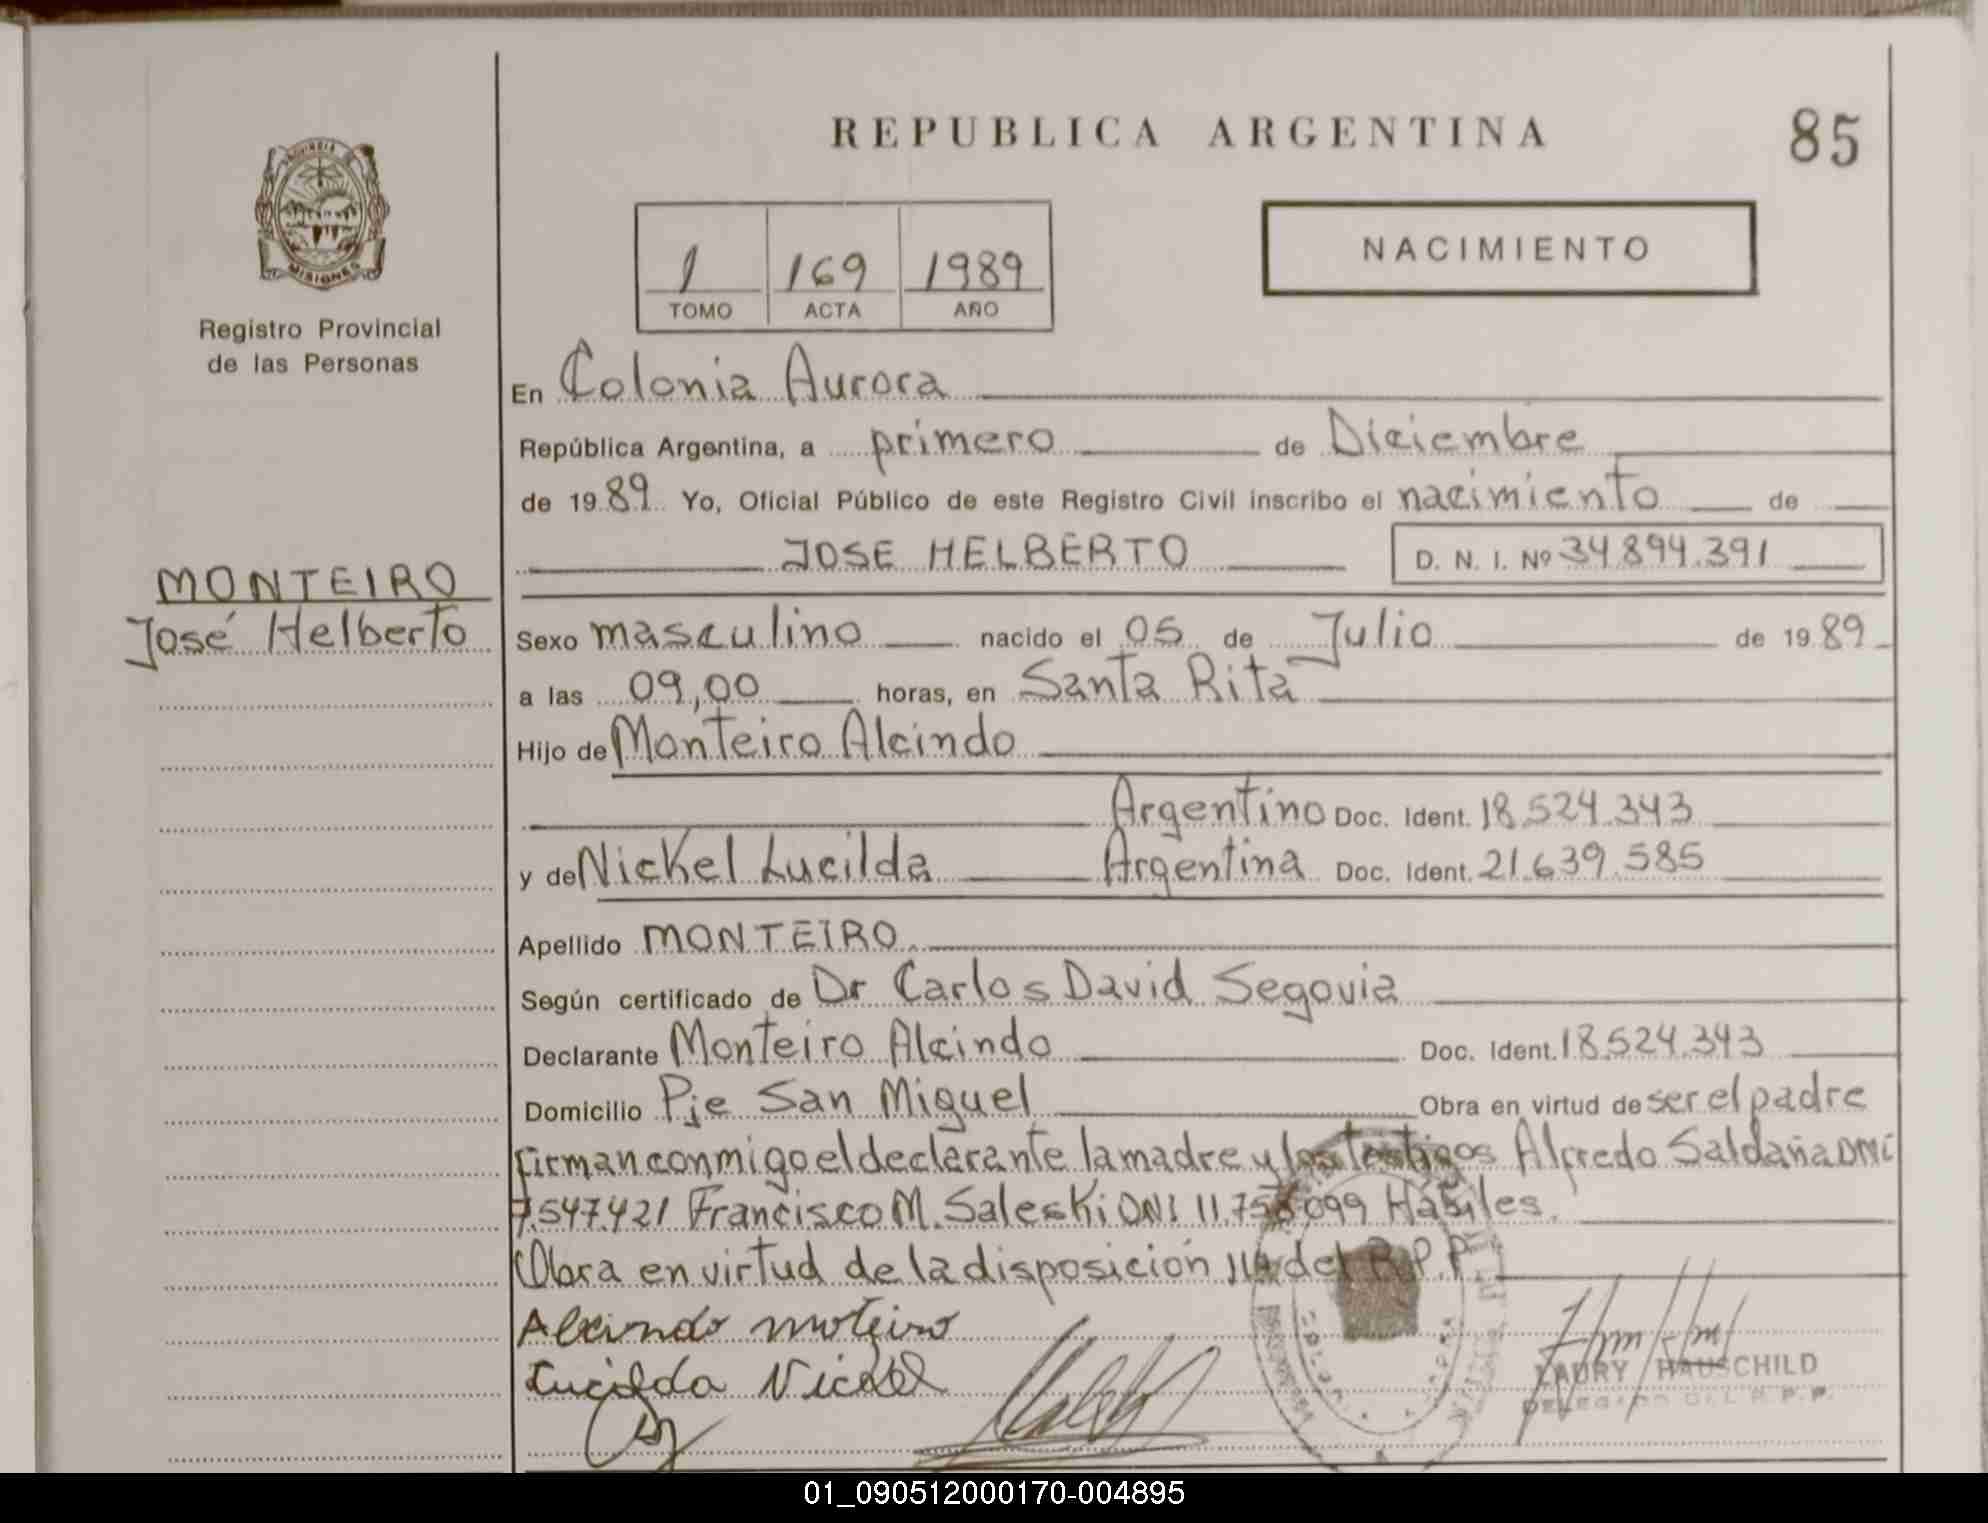 REPUBLICA ARGENTINA
85
PROVINCIA
MISIONES
Registro Provincial
de las Personas
1 169 1989
TOMO ACTA AÑO
NACIMIENTO
En Colonia Aurora
República Argentina, a primero de Diciembre
de 1989 Yo, Oficial Público de este Registro Civil inscribo el nacimiento de
JOSE HELBERTO D. N. I. Nº 34.894.391
MONTEIRO
José Helberto
Sexo masculino nacido el 05 de Julio de 1989
a las 09,00 horas, en Santa Rita
Hijo de Monteiro Alcindo
Argentino Doc. Ident. 18.524.343
y de Nickel Lucilda Argentina Doc. Ident. 21.639.585
Apellido MONTEIRO
Según certificado de Dr Carlos David Segovia
Declarante Monteiro Alcindo Doc. Ident. 18.524.343
Domicilio Pje San Miguel Obra en virtud de ser el padre
firman conmigo el declarante la madre y los testigos Alfredo Saldaña DNI
7.547.421 Francisco M. Saleski DNI 11.756.099 Hábiles.
Obra en virtud de la disposición del R.P.P.
Alcindo moteiro
Lucilda Nickel
LAURY HAUSCHILD
DELEGADO DEL R.P.P.
01_090512000170-004895